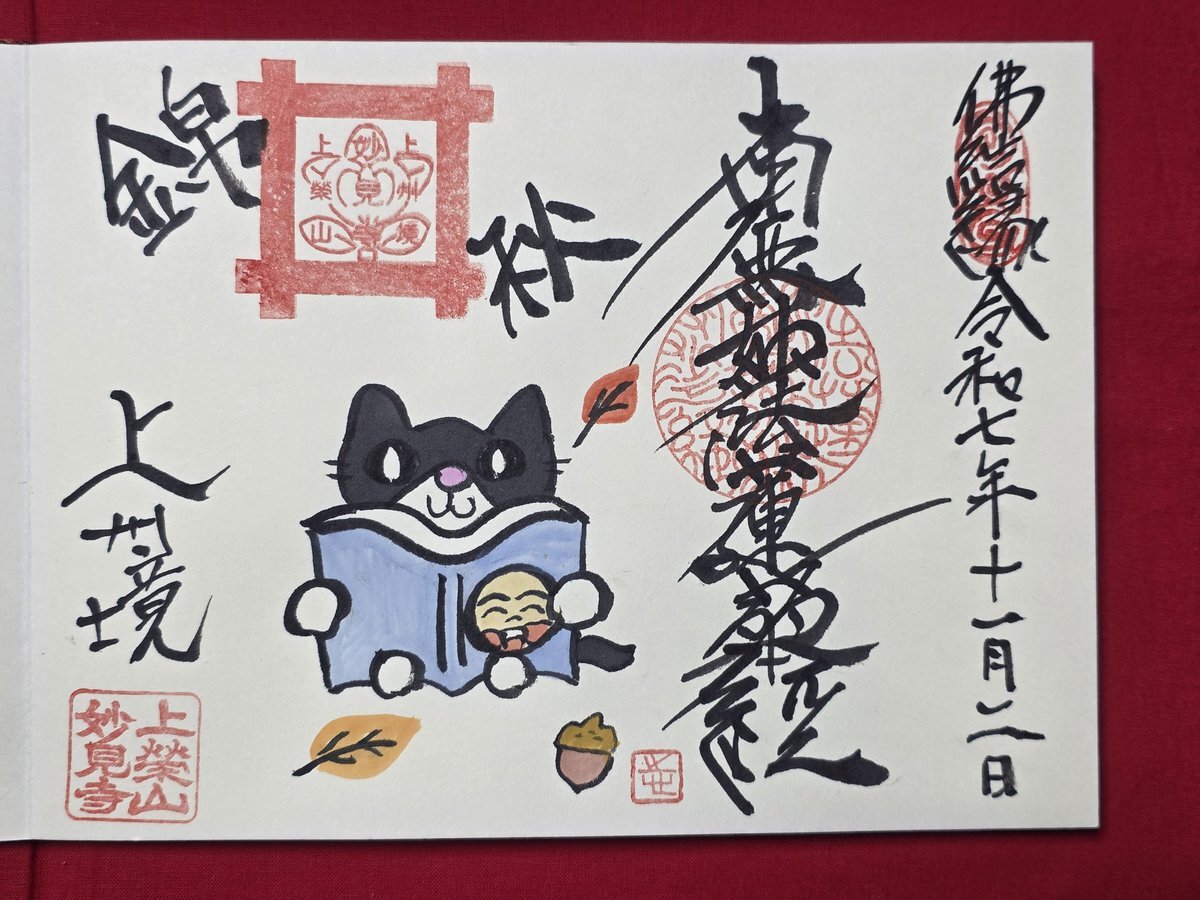 令和七年十一月二日
南無妙法蓮華経
錦秋
上州境
妙見寺
上榮山
上州境
上榮山
妙見寺